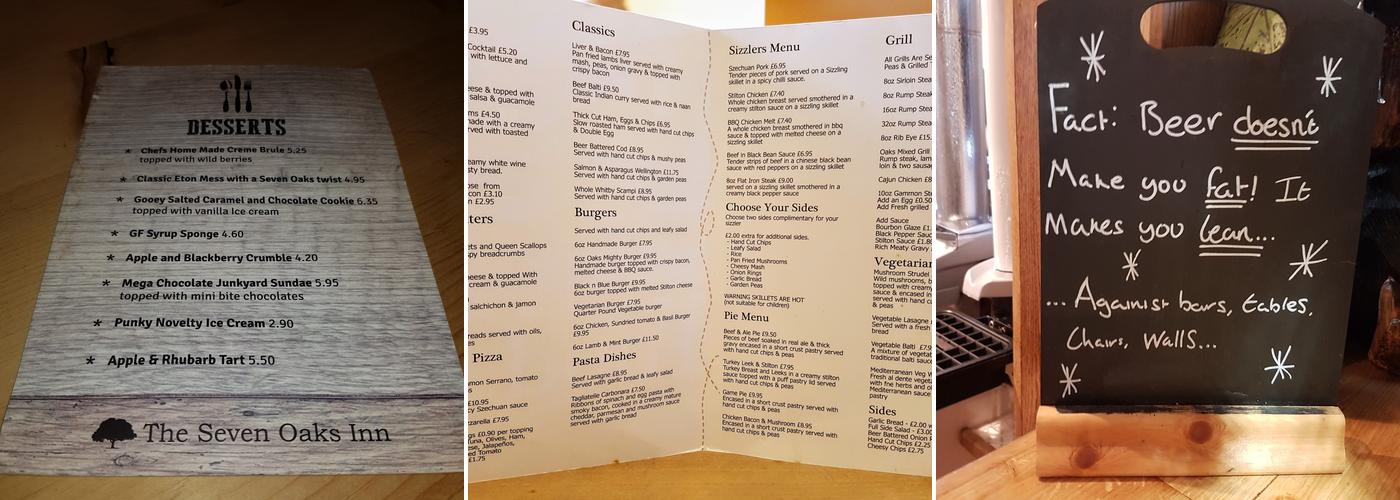 DESSERTS
* Chefs Home Made Creme Brule 5.25
topped with wild berries
* Classic Eton Mess with a Seven Oaks twist 4.95
* Gooey Salted Caramel and Chocolate Cookie 6.35
topped with vanilla Ice cream
* GF Syrup Sponge 4.60
* Apple and Blackberry Crumble 4.20
* Mega Chocolate Junkyard Sundae 5.95
topped with mini bite chocolates
* Punky Novelty Ice Cream 2.90
* Apple & Rhubarb Tart 5.50
The Seven Oaks Inn
£3.95
Cocktail £5.20
with lettuce and
eese & topped with
salsa & guacamole
ms £4.50
made with a creamy
rved with toasted
eamy white wine
sty bread.
ose from
con £3.10
n £2.95
ters
ets and Queen Scallops
py breadcrumbs
eese & topped With
cream & guacamole
salchichon & Jamon
reads served with oils,
Pizza
mon Serrano, tomato
£10.95
cy Szechuan sauce
zarella £7.95
gs £0.90 per topping
una, Olives, Ham,
ese, Jalapeños,
ed Tomato
£1.75
Classics
Liver & Bacon £7.95
Pan fried lambs liver served with creamy
mash, peas, onion gravy & topped with
crispy bacon
Beef Balti £9.50
Classic Indian curry served with rice & naan
bread
Thick Cut Ham, Eggs & Chips £6.95
Slow roasted ham served with hand cut chips
& Double Egg
Beer Battered Cod £8.95
Served with hand cut chips & mushy peas
Salmon & Asparagus Wellington £11.75
Served with hand cut chips & garden peas
Whole Whitby Scampi £8.95
Served with hand cut chips & garden peas
Burgers
Served with hand cut chips and leafy salad
6oz Handmade Burger £7.95
6oz Oaks Mighty Burger £9.95
Handmade burger topped with crispy bacon,
melted cheese & BBQ sauce.
Black n Blue Burger £9.95
6oz burger topped with melted Stilton cheese
Vegetarian Burger £7.95
Quarter Pound Vegetable burger
6oz Chicken, Sundried tomato & Basil Burger
£9.95
6oz Lamb & Mint Burger £11.50
Pasta Dishes
Beef Lasagne £8.95
Served with garlic bread & leafy salad
Tagliatelle Carbonara £7.50
Ribbons of spinach and egg pasta with
smoky bacon, cooked in a creamy mature
cheddar, parmesan and mushroom sauce
served with garlic bread
Sizzlers Menu
Szechuan Pork £6.95
Tender pieces of pork served on a Sizzling
skillet in a spicy chilli sauce.
Stilton Chicken £7.40
Whole chicken breast served smothered in a
creamy stilton sauce on a sizzling skillet
BBQ Chicken Melt £7.40
A whole chicken breast smothered in bbq
sauce & topped with melted cheese on a
sizzling skillet
Beef in Black Bean Sauce £6.95
Tender strips of beef in a chinese black bean
sauce with red peppers on a sizzling skillet
8oz Flat Iron Steak £9.00
served on a sizzling skillet smothered in a
creamy black pepper sauce
Choose Your Sides
Choose two sides complimentary for your
sizzler
£2.00 extra for additional sides.
- Hand Cut Chips
- Leafy Salad
- Rice
- Pan Fried Mushrooms
- Cheesy Mash
- Onion Rings
- Garlic Bread
- Garden Peas
WARNING SKILLETS ARE HOT
(not suitable for children)
Pie Menu
Beef & Ale Pie £9.50
Pieces of beef soaked in real ale & thick
gravy encased in a short crust pastry served
with hand cut chips & peas
Turkey Leek & Stilton £7.95
Turkey Breast and Leeks in a creamy stilton
sauce topped with a puff pastry lid served
with hand cut chips & peas
Game Pie £9.95
Encased in a short crust pastry served with
hand cut chips & peas
Chicken Bacon & Mushroom £8.95
Encased in a short crust pastry served with
hand cut chips & peas
Grill
All Grills Are Se
Peas & Grilled
8oz Sirloin Stea
8oz Rump Steak
16oz Rump Stea
32oz Rump Stea
8oz Rib Eye £15.
Oaks Mixed Grill
Rump steak, lam
loin & two sausa
Cajun Chicken £8
10oz Gammon Ste
Add an Egg £0.50
Add Fresh grilled
Add Sauce
Bourbon Glaze £1.
Black Pepper Sauc
Stilton Sauce £1.80
Rich Meaty Gravy
Vegetarian
Mushroom Strudel
Wild mushrooms, b
sauce & encased in
served with hand c
& peas
Vegetable Lasagne
Served with a fresh
bread
Vegetable Balti £7.9
A mixture of vegetab
traditional balti sauc
Mediterranean Veg W
Fresh al dente vegetab
with fine herbs and ol
Mediterranean sauce
pastry
Sides
Garlic Bread - £2.00 w
Full Side Salad - £3.00
Beer Battered Onion R
Hand Cut Chips £2.25
Cheesy Chips £2.75
Fact: Beer doesn't
Make you fat! It
Makes you lean...
... Against bars, tables,
Chairs, Walls...